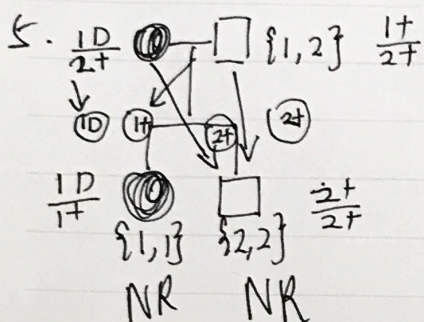 5. 1D/2+ {1,2} 1+/2+
1D 1+ 2+ 2+
1D/1+ {1,1} {2,2} 2+/2+
NR NR